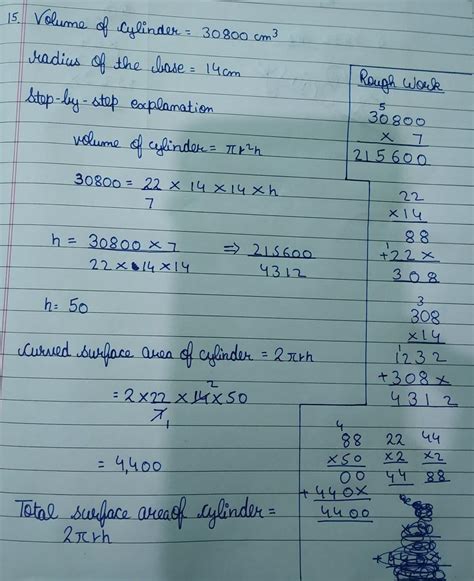 15. Volume of cylinder = 30800 cm³
radius of the base = 14cm
Step-by-step explanation
volume of cylinder = πr²h
30800 = 22/7 × 14 × 14 × h
h = 30800 × 7 / 22 × 14 × 14 ⇒ 215600 / 4312
h = 50
Curved surface area of cylinder = 2πrh
= 2 × 22/7 × 14 × 50
2
1
= 4,400
Total surface area of cylinder =
2πrh
Rough Work
5
30800
× 7
215600
22
×14
1
88
+22×
308
3
308
×14
1
1232
+308×
4312
4
88 22 44
×50 ×2 ×2
00 44 88
+440×
4400